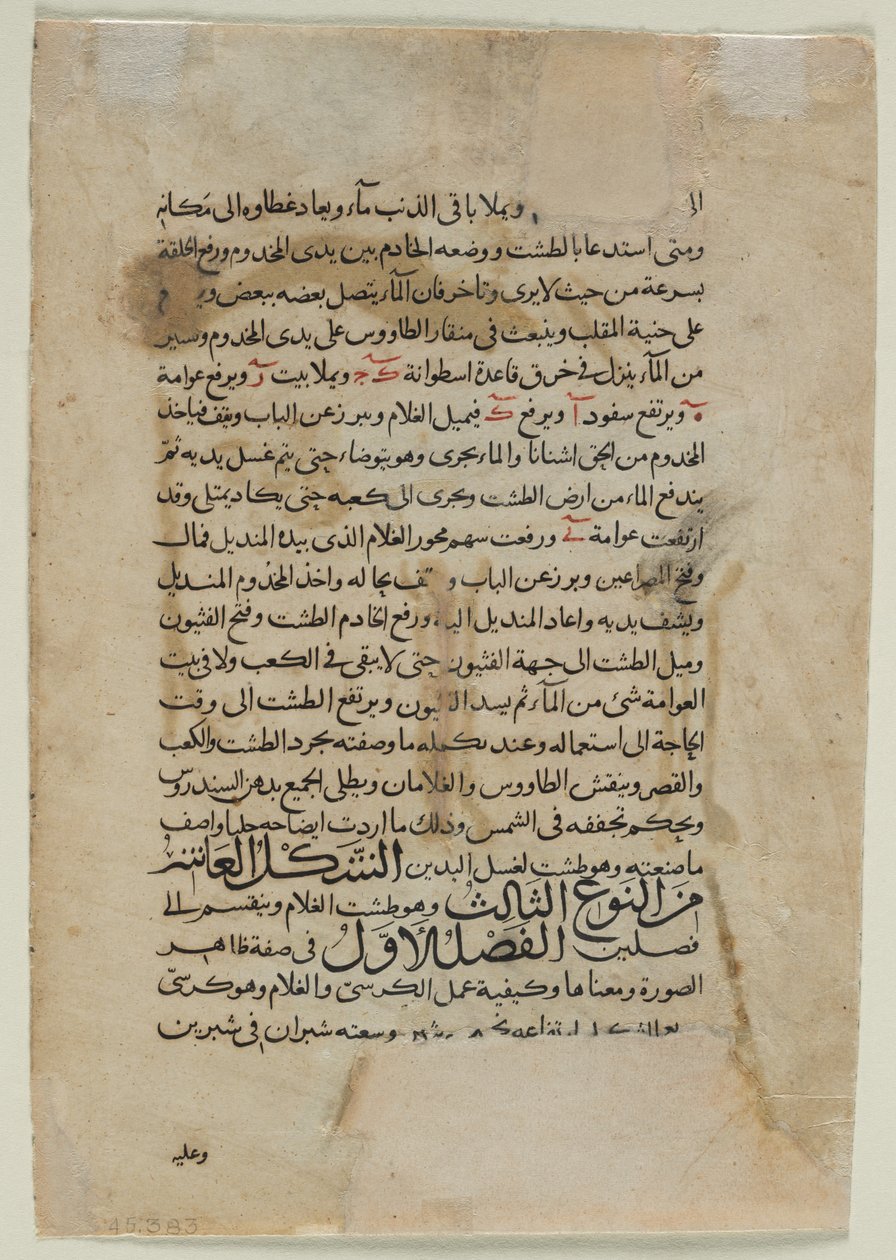 الى ويملا باقى الذنب مآء ويعاد غطاوه الى مكانه
ومتى استدعا بالطشت ووضعه الخادم بين يدى المخدوم ورفع الحلقة
بسرعة من حيث لا يرى وتاخر فان المآء يتصل بعضه ببعض
على حنية المقلب وينبعث فى منقار الطاووس على يدى المخدوم ويسير
من المآء ينزل فى خرق قاعدة اسطوانة ويملا بيت ويرفع عوامة
ويرتفع سفود آ ويرفع فيميل الغلام ويبرز عن الباب ويقف فياخذ
المخدوم من الحق اشنانا والماء يجرى وهو يتوضاء حتى يتم غسل يديه ثمّ
يندفع الماء من ارض الطشت ويجرى الى كعبه حتى يكاد يمتلى وقد
ارتفعت عوامة ورفعت سهم محور الغلام الذى بيده المنديل فمال
وفتح المصراعين وبرز عن الباب بحاله واخذ المخدوم المنديل
ونشف يديه واعاد المنديل اليه ورفع الخادم الطشت وفتح الفثيون
وميل الطشت الى جهة الفثيون حتى لا يبقى فى الكعب ولا فى بيت
العوامة شئ من المآء ثم يسد الفثيون ويرتفع الطشت الى وقت
الحاجة الى استعماله وعند تكمله ما وصفته يجرد الطشت والكعب
والقصر وينقش الطاووس والغلامان ويطلى الجميع بدهن السندروس
ويحكم تجففه فى الشمس وذلك ما اردت ايضاحه جليا واصف
ما صنعته وهو طشت لغسل اليدين الشّكل العاشر
من النوع الثالث وهو طشت الغلام وينقسم الى
فصلين الفصل الأوّل فى صفة ظاهر
الصورة ومعناها وكيفية عمل الكرسىّ والغلام وهو كرسىّ
ارتفاعه وسعته شبران فى شبرين
وعليه
45.383